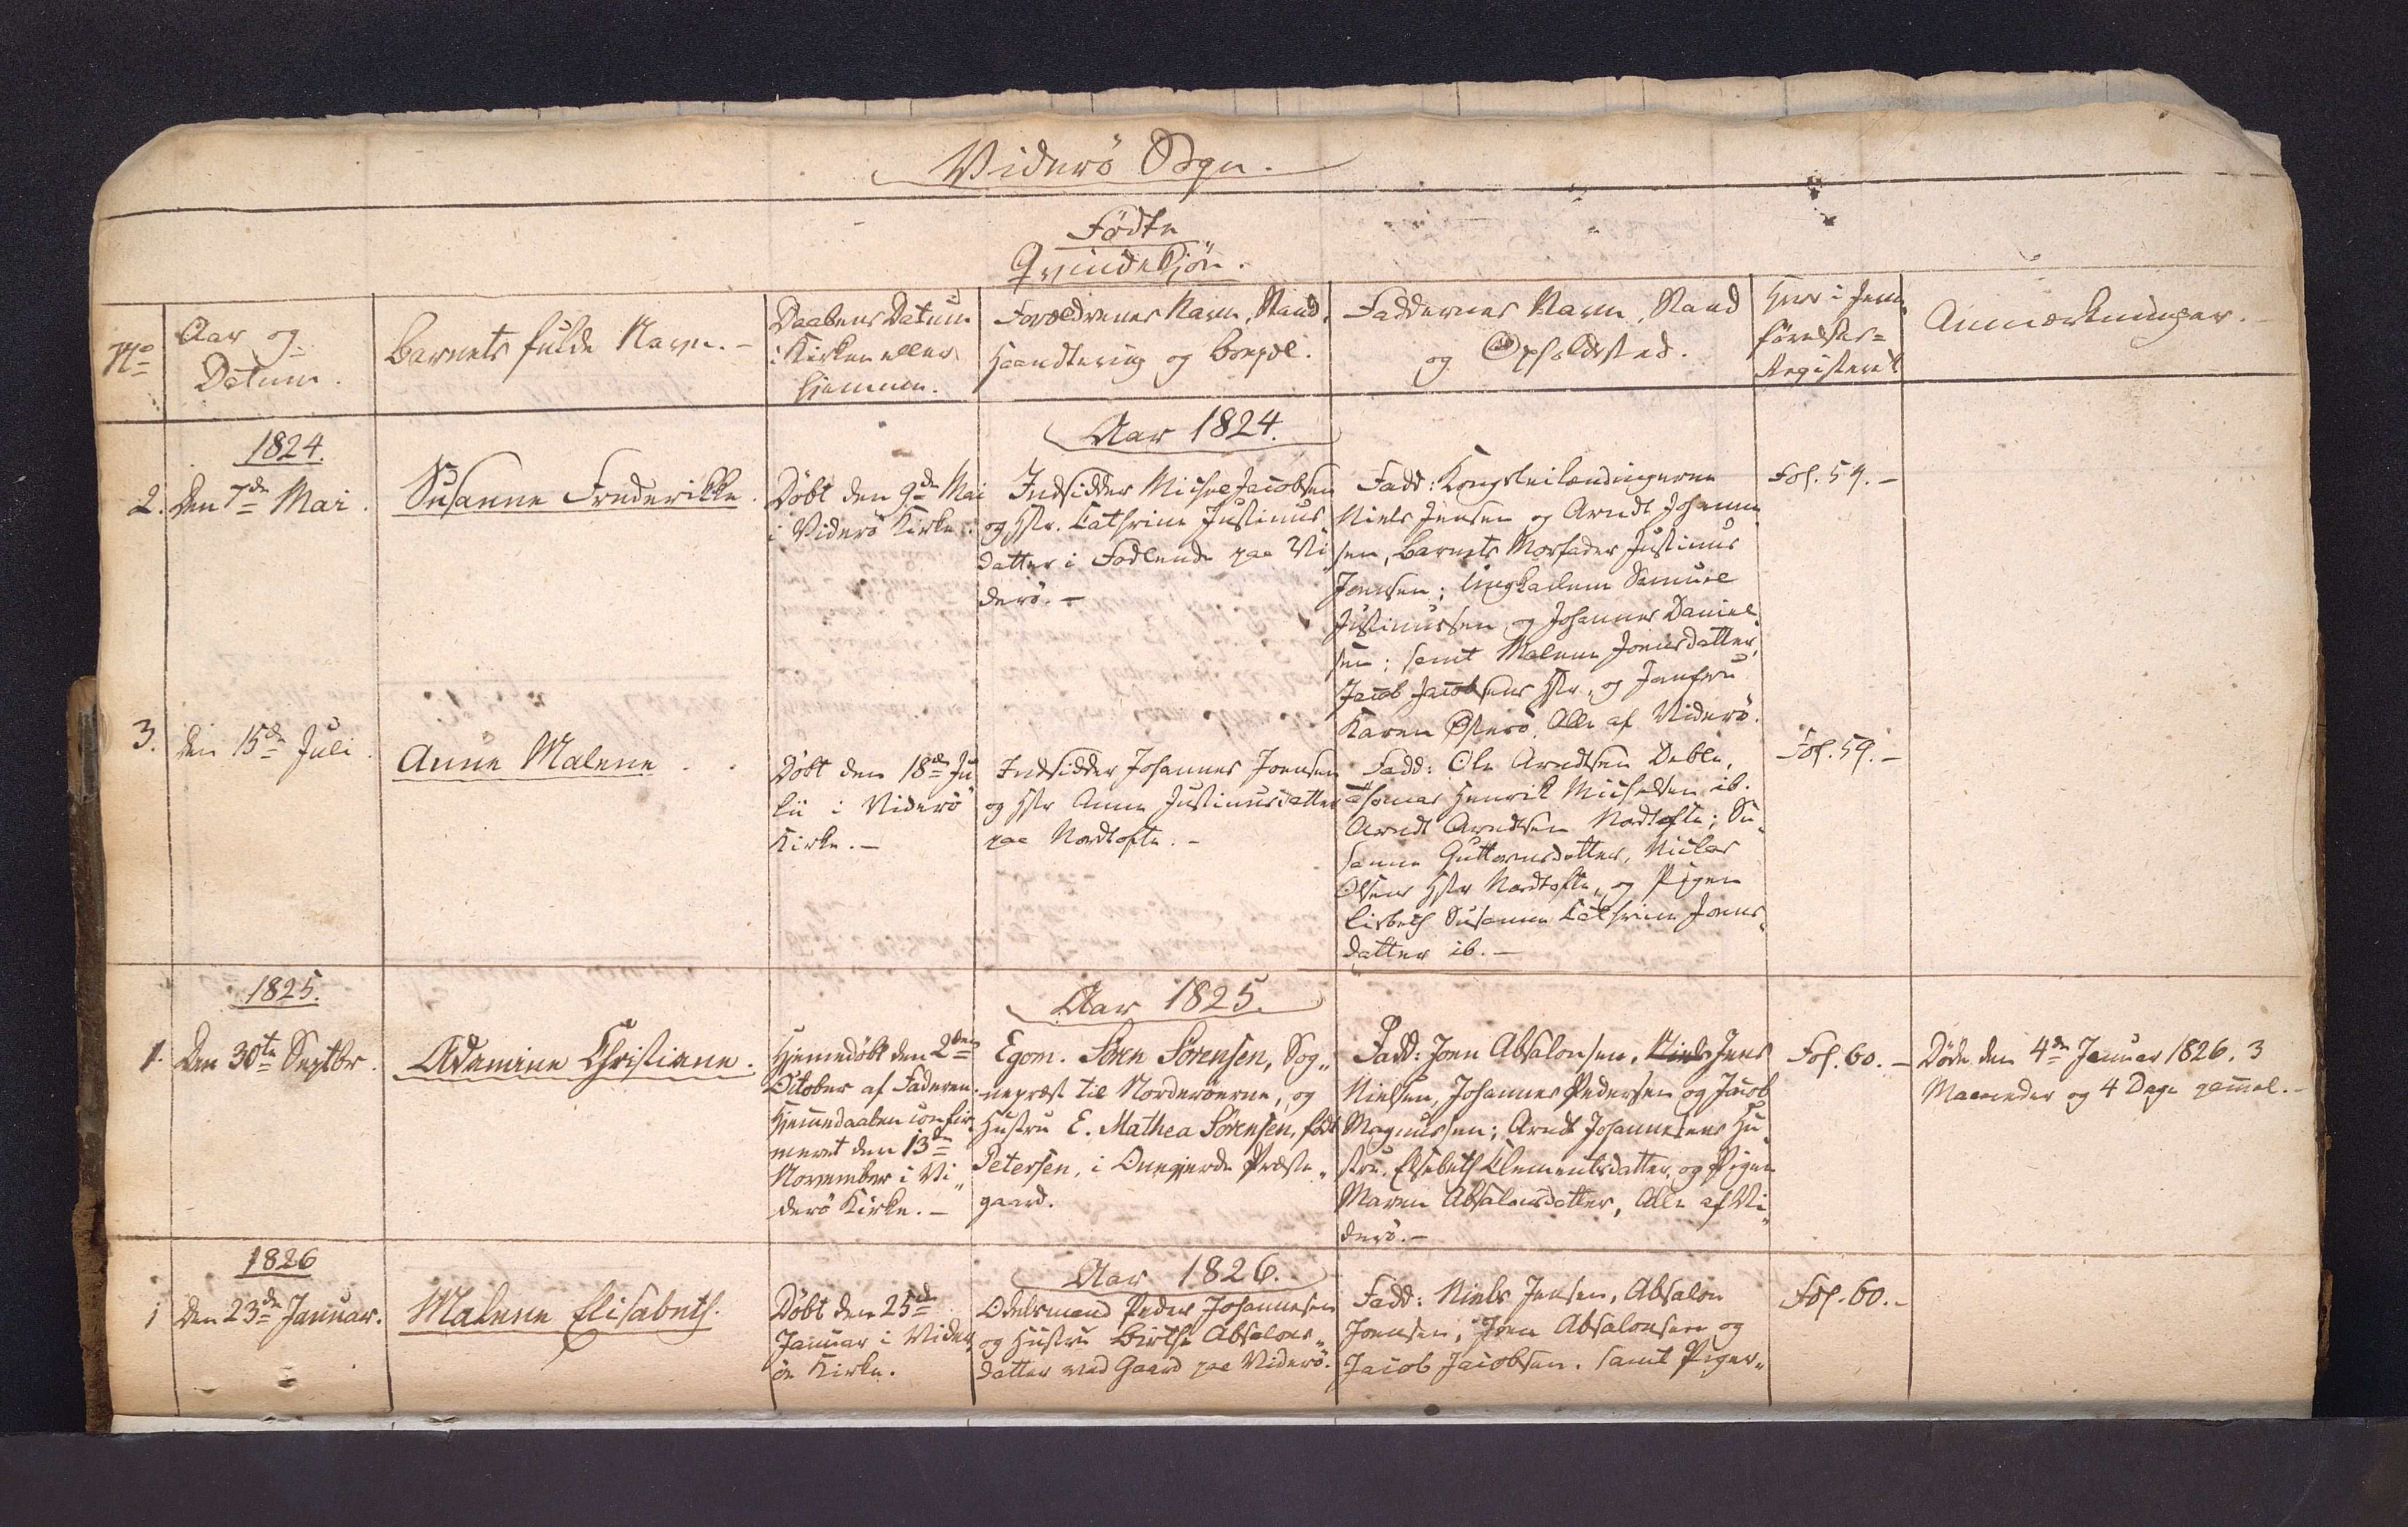 Viderö Sogn.
Fødte
Qvindekjön.
No
Aar og
Datum.
Barnets fulde Navn.-
Daabens Datum
i Kirken eller
Hjemmen.
Forældrenes Navn, Stand,
Haandtering og Bopæl.
Faddernes Navn, Stand
og Opholdsted.
Hvor i Jevn
førelses=
Registeret
Anmærkninger.
1824.
Aar 1824.
2.
Den 7de Mai.
Susanne Frederikke.
Döbt den 9de Mai
i Viderö Kirke.
Indsidder Michel Jacobsen
og Hstr. Cathrine Justinus
datter i Fodlende paa Vi
derö.-
Fadd: Kongsleilændingerne
Niels Jensen og Arndt Johanne
sen, Barnets Morfader Justinus
Joensen; Ungkarlene Samuel
Justinussen og Johannes Daniel-
sen; samt Malene Joensdatter,
Jacob Jacobsens Hstr, og Jomfru
Karen Österö. Alle af Viderö.
Fol. 59.-
3.
den 15de Juli.
Anne Malene
Döbt den 18de Ju
lii i Viderö
Kirke.-
Indsidder Johannes Joensen
og Hstr Anne Justinusdatter
paa Nordtofte.-
Fadd: Ole Arndtsen Deble,
Thomas Henrik Michelsen ib.
Arndt Arndtsen Nordtofte; Su„
sanne Guttormsdatter, Niclas
Olsens Hstr Nordtofte, og Pigen
Lisbeth Susanne Cathrine Joens„
datter ib.-
Fol. 59.-
1825.
Aar 1825.
1.
Den 30te Septbr.
Adamine Christiane.
Hjemmedöbt den 2den
October af Faderen.
Hjemmedaaben confir„
meret den 13de
November i Vi„
derö Kirke.-
Egom. Sören Sörensen, Sog„
nepræst til Norderöerne, og
Hustru E. Mathea Sörensen, född
Petersen, i Onegjerde Præste„
gaard.
Fadd: Joen Absalonsen, Niels Jens
Nielsen, Johannes Pedersen og Jacob
Magnussen; Arndt Johannesens Hu„
stru, Elsebeth Clementsdatter, og Pigen
Maren Absalonsdatter, Alle af Vi„
derö.-
Fol. 60.-
Döde den 4de Januar 1826. 3
Maaneder og 4 Dage gammel.-
1826
Aar 1826.
1
Den 23de Januar.
Malene Elisabeth.
Döbt den 25de
Januar i Vider„
öe Kirke.
Odelsmand Peder Johannesen
og Hustru Birthe Absalons„
datter ved Gaard paa Viderö.
Fadd: Niels Jensen, Absalon
Joensen, Joen Absalonsen og
Jacob Jacobsen. samt Piger„
Fol. 60.-